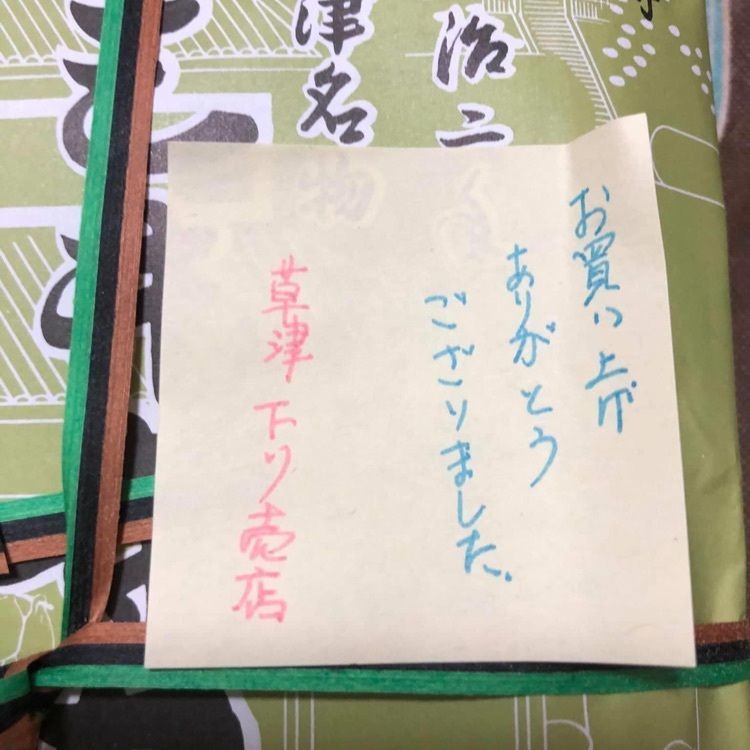 治二年
津名物
お買い上げ
ありがとう
ございました。
草津下り売店